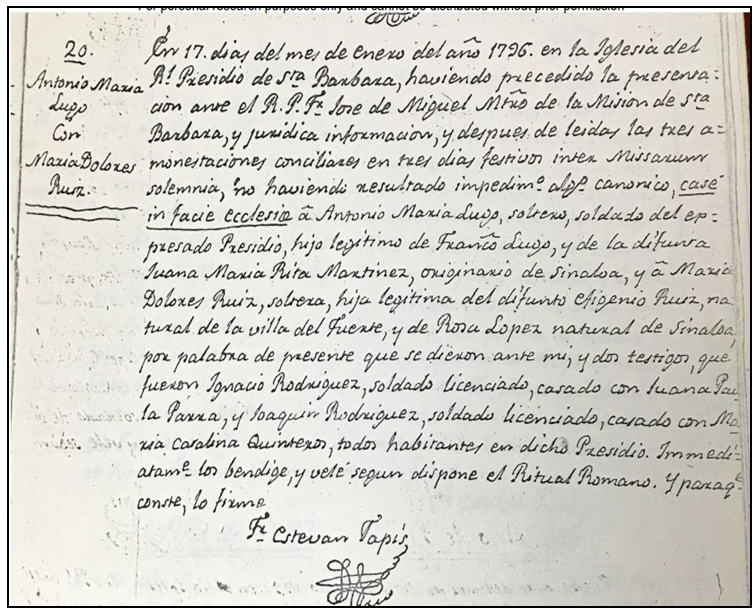 For personal research purposes only and cannot be distributed without prior permission
20.
Antonio Maria
Lugo
Con
Maria Dolores
Ruiz.
En 17. dias del mes de enero del año 1796. en la Iglesia del
Rl. Presidio de Sta Barbara, haviendo precedido la presenta-
cion ante el R. P. Fr. Jose de Miguel Mtro de la Mision de Sta
Barbara, y juridica informacion, y despues de leidas las tres a-
monestaciones conciliares en tres dias festivos inter Missarum
solemnia, no haviendo resultado impedimo. algo. canonico, casé
in facie ecclesiæ â Antonio Maria Lugo, soltero, soldado del ex-
presado Presidio, hijo legitimo de Franco. Lugo, y de la difunta
Juana Maria Rita Martinez, originario de Sinaloa, y â Maria
Dolores Ruiz, soltera, hija legitima del difunto efigenio Ruiz, na
tural de la villa del Fuerte, y de Rosa Lopez natural de Sinaloa,
por palabra de presente que se dieron ante mi, y dos testigos, que
fueron Ignacio Rodriguez, soldado licenciado, casado con Juana Pau
la Parra, y Joaquin Rodriguez, soldado licenciado, casado con Ma
ria Catalina Quinteros, todos habitantes en dicho Presidio. Immedi-
atame. los bendige, y velé segun dispone el Ritual Romano. Y paraqe
conste, lo firme
Fr. Estevan Tapis